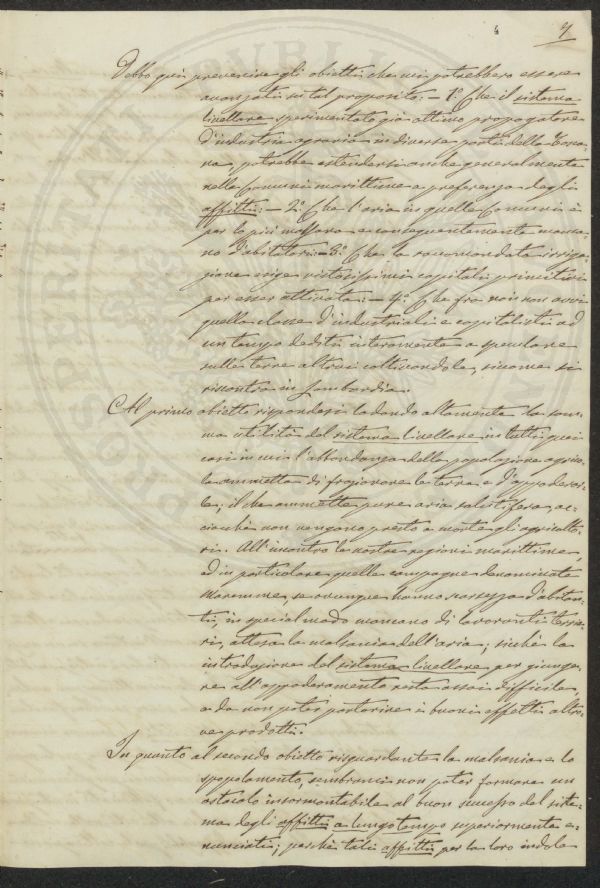 7
Debbo quì prevenire gli obietti che mi potrebbero essere
avanzati in tal proposito; — 1.º Che il sistema
livellare sperimentato già ottimo propagatore
d'industria agraria in diverse parti della Tosca-
na, potrebbe estendersi anche generalmente
nelle Comuni marittime a preferenza degli
affitti: — 2.º Che l'aria in quelle Comuni è
per lo più malsana e conseguentemente manca-
no d'abitatori: — 3.º Che la raccomandata irriga-
zione esige vistosissimi capitali primitivi
per esser attivata: — 4.º Che fra noi non avvi
quella classe d'industriali e capitalisti ad
un tempo dediti interamente a speculare
sulle terre altrui coltivandole, siccome si
riscontra in Lombardia.
Al primo obietto rispondesi lodando altamente la som-
ma utilità del sistema livellare in tutti quei
casi in cui l'abbondanza della popolazione agrico-
la ammetta di frazionare le terre e d'appoderar-
le; il che ammette pure aria salutifera, ac-
ciocchè non vengano presto a morte gli agricolto-
ri. All'incontro le nostre regioni marittime,
ed in particolare quelle campagne denominate
Maremme, se ovunque hanno scarsezza d'abitan-
ti, in special modo mancano di lavoranti terrie-
ri, attesa la malsania dell'aria; sicchè la
introduzione del sistema livellare per giunge-
re all'appoderamento resta assai difficile,
e da non poter partorire i buoni effetti altro-
ve prodotti.
In quanto al secondo obietto risguardante la malsania e lo
spopolamento, sembrami non poter formare un
ostacolo insormontabile al buon successo del siste-
ma degli affitti a lungo tempo superiormente e-
nunciati; perchè tali affitti per la loro indole